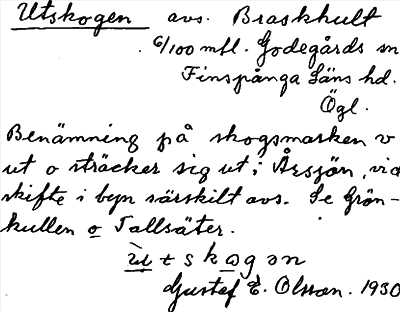 Utskogen avs. Braskhult
6/100 mtl. Godegårds sn
Finspånga Läns hd.
Ögl.
Benämning på skogsmarken v
ut o sträcker sig ut i Årsjön, vid
skifte i byn särskilt avs. Se Grön-
kullen o Tallsäter.
ùtskogən
Gustaf E. Olsson. 1930